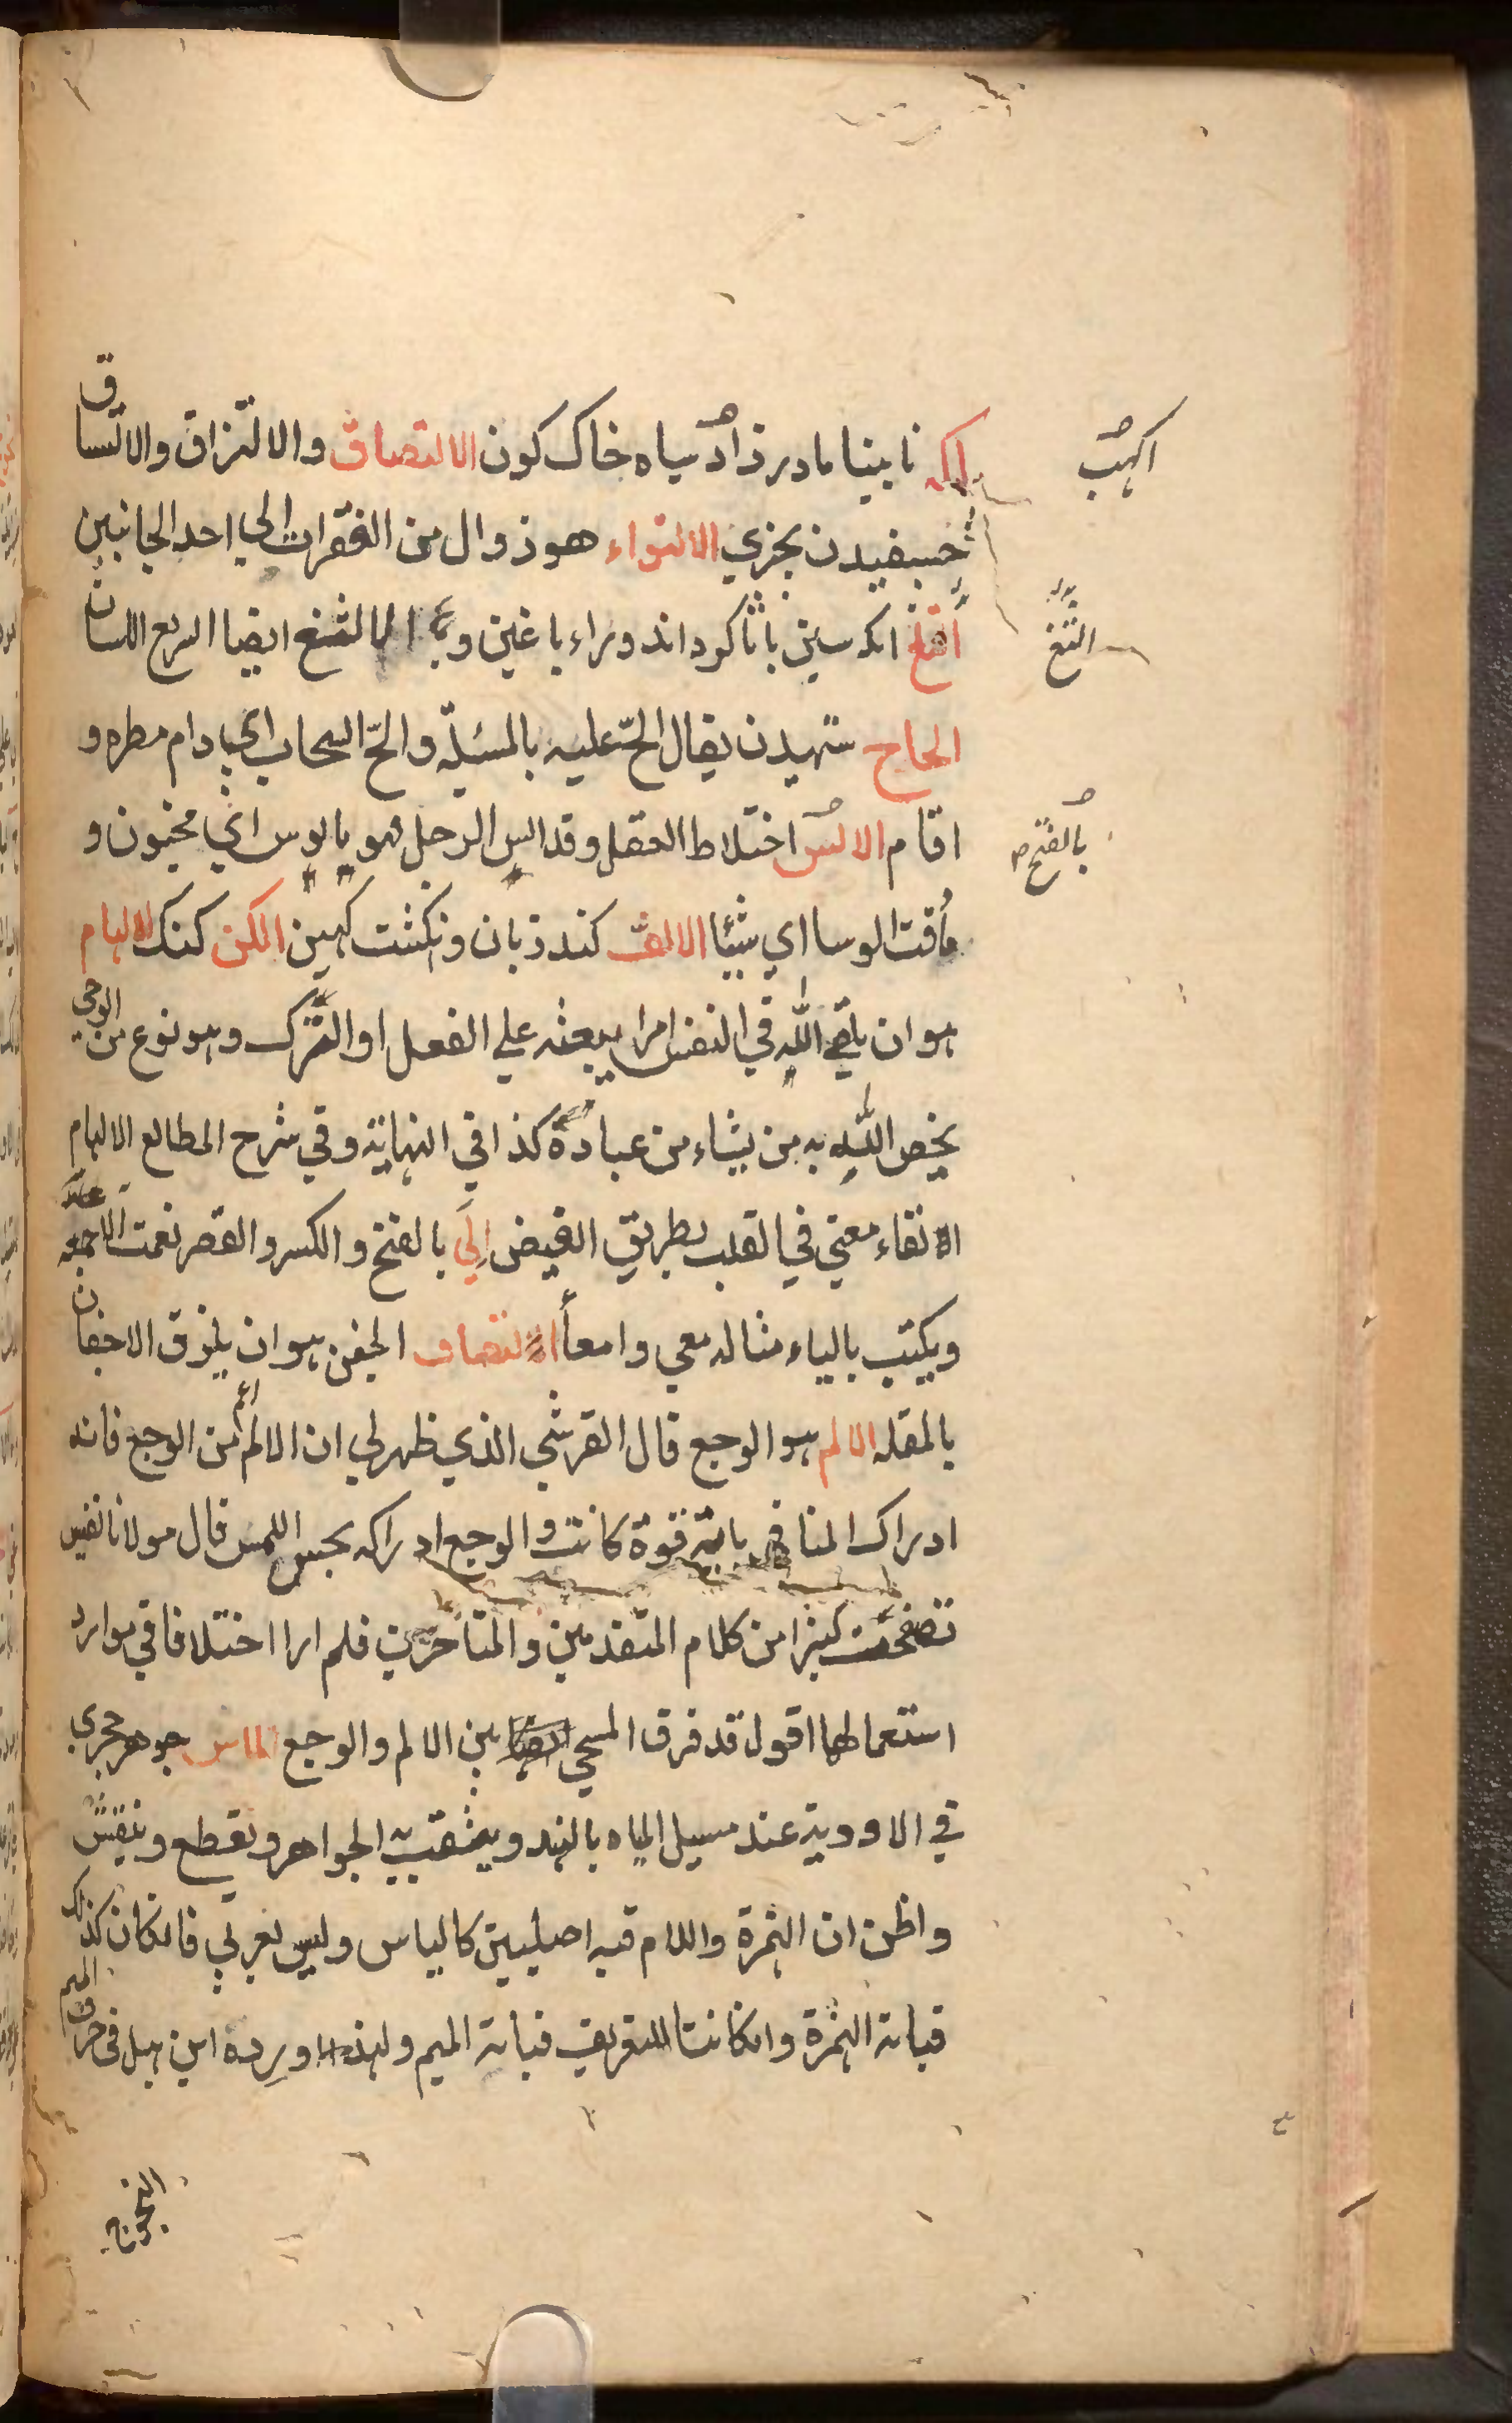 اكمه نابينا مادر زاد سياه خاك كون الالتصاق والالتزاق والالتساق
چسبيدن بچيزي الالتواء هو زوال من الفقرات الي احد الجانبين
الثغ انكه سين باثا كرداند وراء با غين و الالثغ ايضا السريع اللسان
الحاح ستهيدن يقال الحّ عليه بالمسئلة والحّ السحاب اي دام مطره و
اقام الالس اختلاط العقل وقد الس الرجل فهو مالوس اي مجنون و
ماذقت الوسا اي شيئا الالف كند زبان وانكشت كهين الكن كنك الالهام
هو ان يلقي الله في النفس امرا يبعثه علي الفعل او الترك وهو نوع من الوحي
يخص الله به من يشاء من عباده كذا في النهاية وفي شرح المطالع الالهام
القاء معني في القلب بطريق الفيض الي بالفتح والكسر والقصر نعمت الاجمعه
ويكتب بالياء مثاله معي وامعأ التصاق الجفن هو ان يلزق الاجفان
بالمقله الالم هو الوجع قال القرشي الذي ظهر لي ان الالم اعم من الوجع فانه
ادراك المنافي باية قوة كانت والوجع ادراكه بحس اللمس قال مولانا نفيس
تصفحت كثيرا من كلام المتقدمين والمتأخرين فلم ار اختلافا في موارد
استعمالها اقول قد فرق المسيحي بين الالم والوجع الماس جوهر حجري
في الاودية عند مسيل المياه بالهند ويثقب به الجواهر ويقطع وينقش
واظن ان الهمزة واللام فيه اصليين كالياس وليس بعربي فانكان كذلك
فبابه الهمزة وانكانتا للتعريف فبابه الميم ولهذا اورده ابن هبل في حرف الميم
اكهب
الثغ
بالفتح